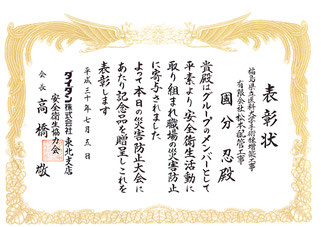 表彰状
福島県立医科大学手術棟増築工事
有限会社 松本配管工事
國分 忍 殿
貴殿はグループのメンバーとして
平素より安全衛生活動に
取り組まれ職場の災害防止
に寄与されました
よって本日の災害防止大会に
あたり記念品を贈呈しこれを
表彰します
平成三十年七月五日
ダイダン株式会社 東北支店
安全衛生協力会
会長 高橋